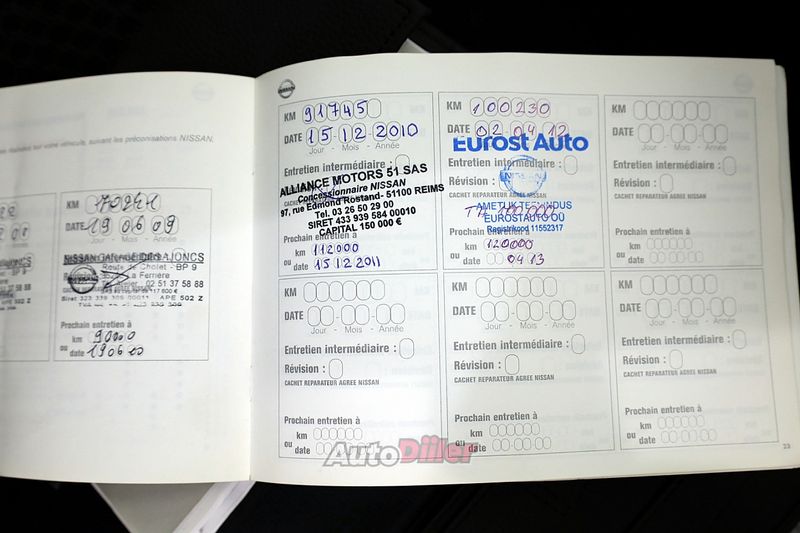 suivant les préconisations NISSAN.
DATE 19 06 09
Route de Cholet - BP 9
02 51 37 58 88
APE 502 Z
Prochain entretien à
km 90000
ou date
NISSAN
KM 91745
DATE 15 12 2010
Jour - Mois - Année
Entretien intermédiaire :
ALLIANCE MOTORS 51 SAS
Concessionnaire NISSAN
97, rue Edmond Rostand - 51100 REIMS
Tel. 03 26 50 29 00
SIRET 433 939 584 00010
CAPITAL 150 000 €
Prochain entretien à
km 112000
ou date 15 12 2011
KM 100230
DATE 02 04 12
Eurost Auto
Entretien intermédiaire :
Révision :
NISSAN
CACHET REPARATEUR AGREE NISSAN
AMETLIK TEENINDUS
EUROSTAUTO OÜ
Registrikood 11552317
Prochain entretien à
km 120000
ou date 04 13
KM
DATE
Jour - Mois - Année
Entretien intermédiaire :
Révision :
CACHET REPARATEUR AGREE NISSAN
Prochain entretien à
km
ou date
KM
DATE
Jour - Mois - Année
Entretien intermédiaire :
Révision :
CACHET REPARATEUR AGREE NISSAN
Prochain entretien à
km
ou date
KM
DATE
Jour - Mois - Année
Entretien intermédiaire :
Révision :
CACHET REPARATEUR AGREE NISSAN
Prochain entretien à
km
ou date
KM
DATE
Jour - Mois - Année
Entretien intermédiaire :
Révision :
CACHET REPARATEUR AGREE NISSAN
Prochain entretien à
km
ou date
23
AutoDiiler